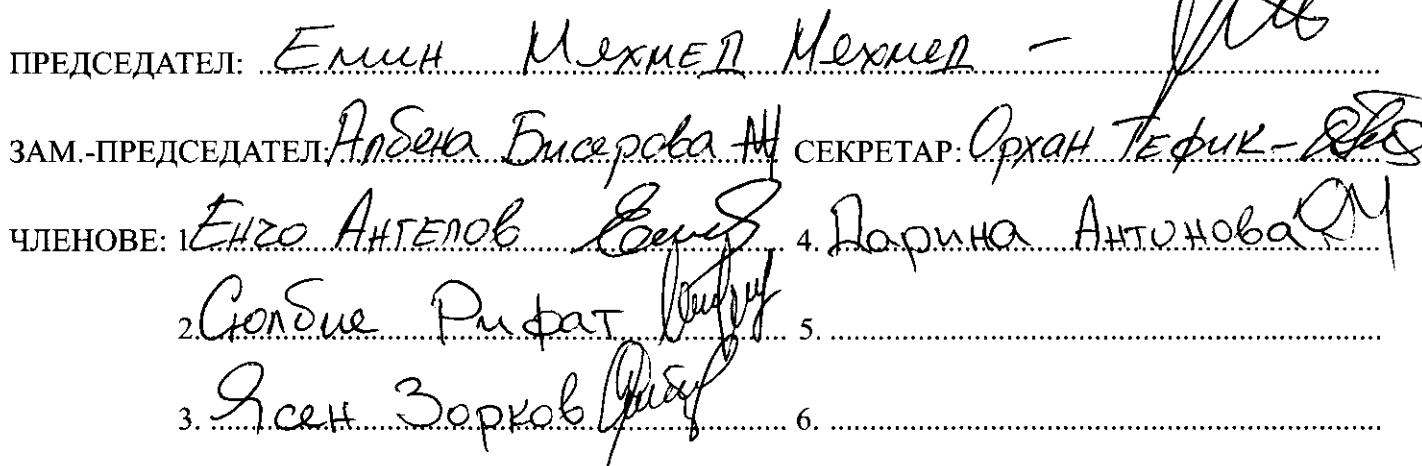 ПРЕДСЕДАТЕЛ: Емин Мехмед Мехмед -
ЗАМ.-ПРЕДСЕДАТЕЛ: Албена Бисерова СЕКРЕТАР: Орхан Тефик -
ЧЛЕНОВЕ: 1. Енчо Ангелов 4. Дарина Антонова
2. Сюлбие Рифат 5.
3. Ясен Зорков 6.